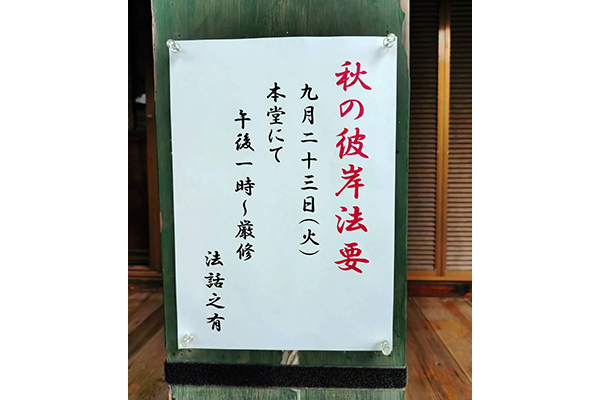 秋の彼岸法要
九月二十三日(火)
本堂にて
午後一時～厳修
法話之有